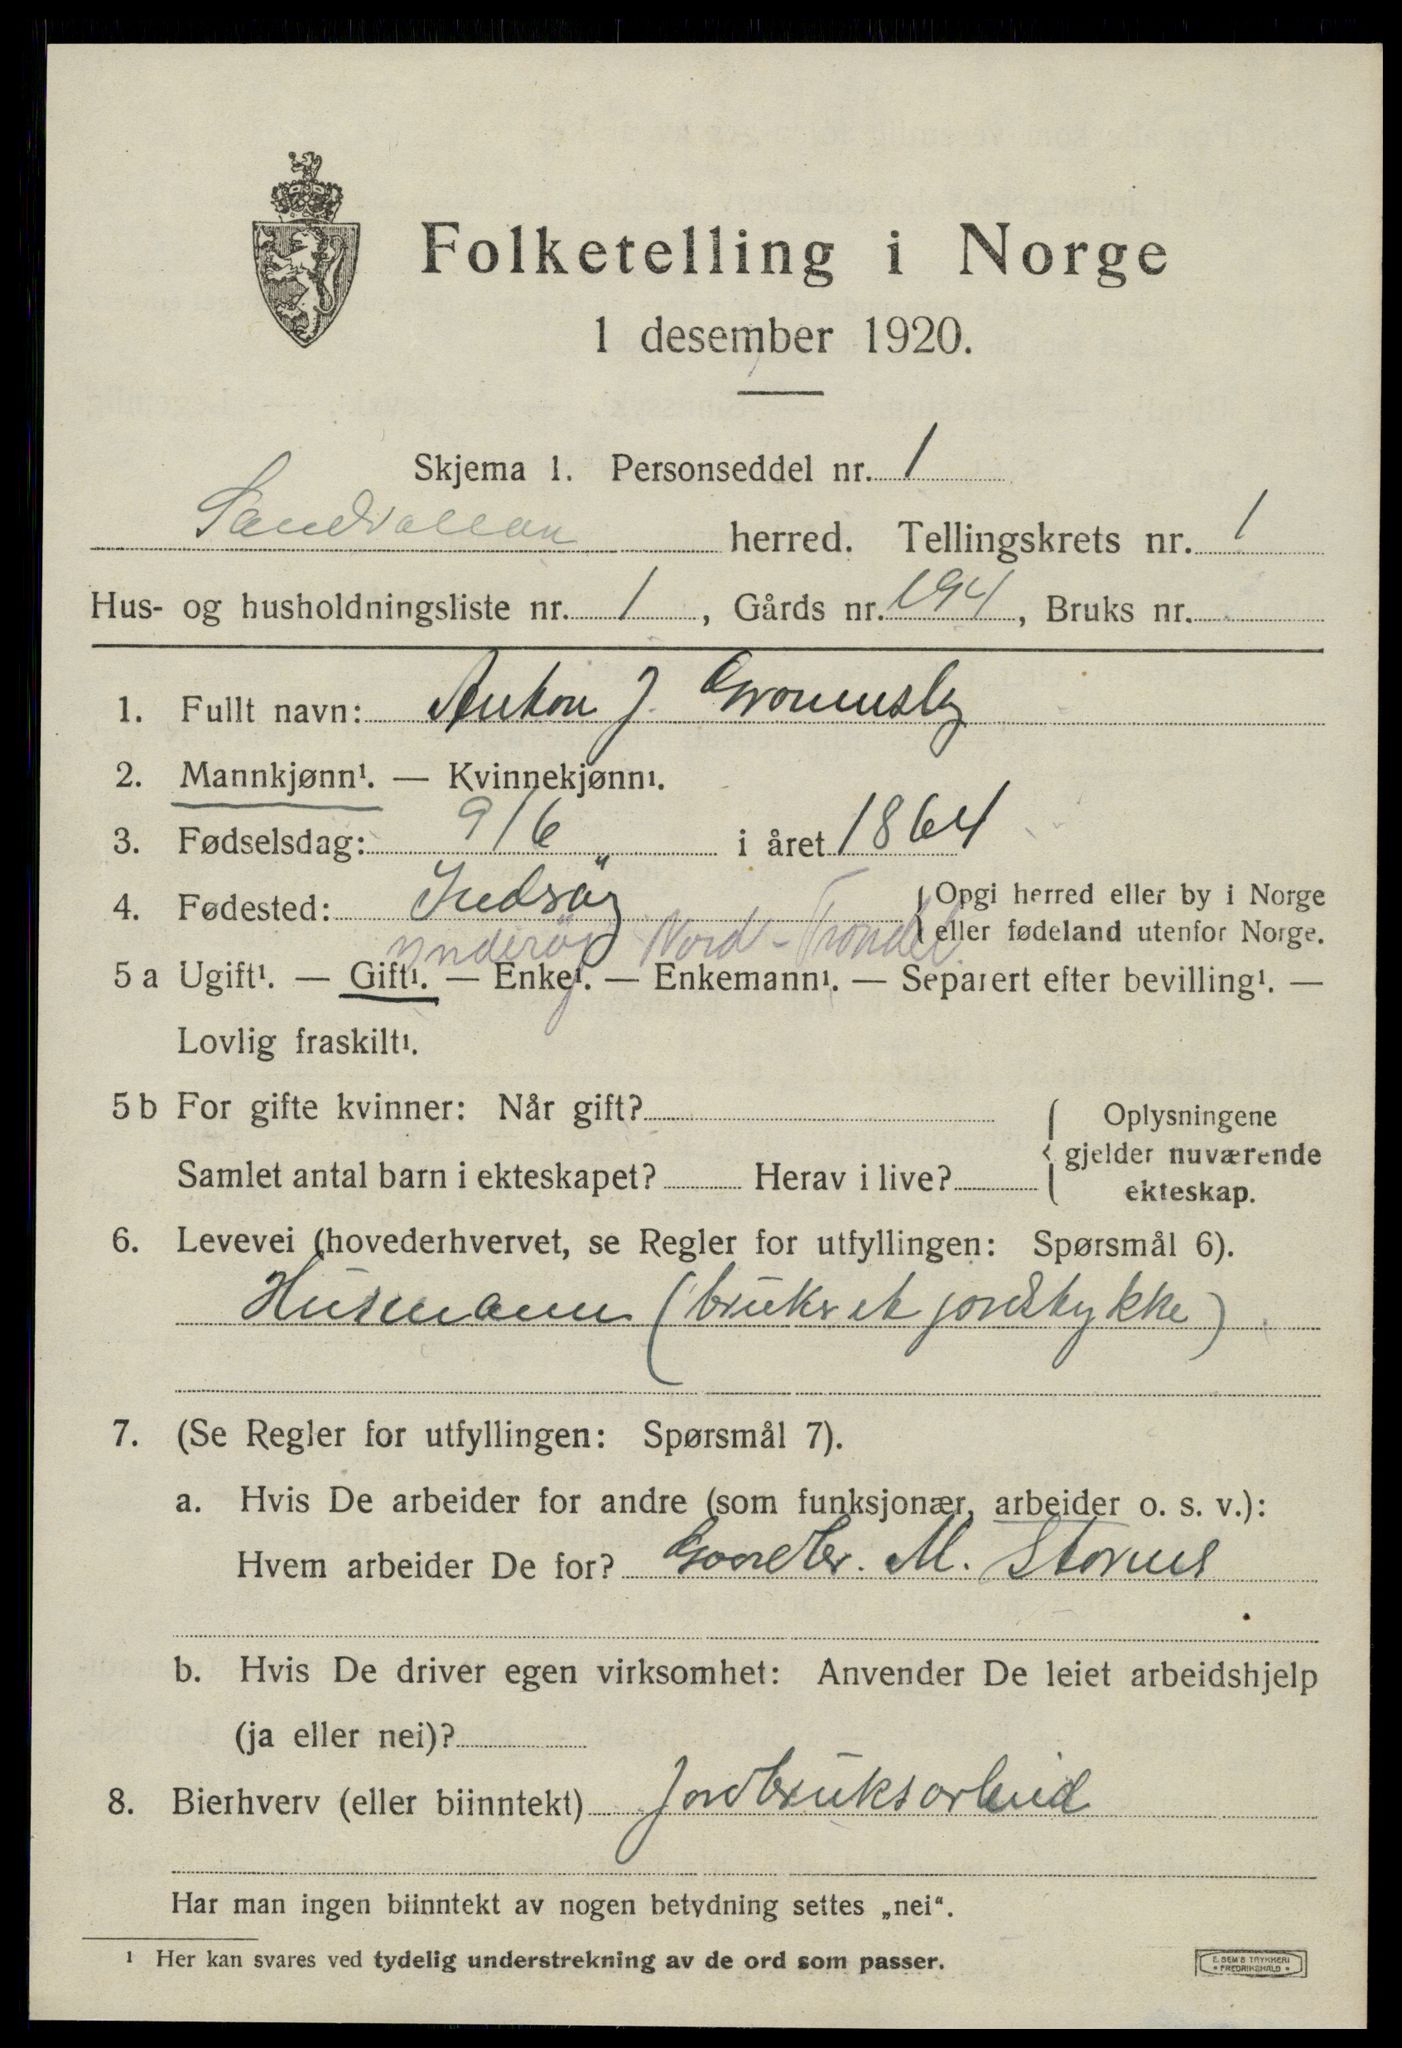 Folketelling i Norge
1 desember 1920.
Skjema 1. Personseddel nr. 1
Sandvollan herred. Tellingskrets nr. 1
Hus- og husholdningsliste nr. 1, Gårds nr. 194, Bruks nr.
1. Fullt navn: Anton J. Gronnesby
2. Mannkjønn¹. — Kvinnekjønn¹.
3. Fødselsdag: 9/6 i året 1864
4. Fødested: Indröy { Opgi herred eller by i Norge
Ynderöy Nord-Trondel. eller fødeland utenfor Norge.
5 a Ugift¹. — Gift¹. — Enke¹. — Enkemann¹. — Separert efter bevilling¹. —
Lovlig fraskilt¹.
5 b For gifte kvinner: Når gift?
Samlet antal barn i ekteskapet? Herav i live?
{ Oplysningene
gjelder nuværende
ekteskap.
6. Levevei (hovederhvervet, se Regler for utfyllingen: Spørsmål 6).
Husmann (bruker et jordstykke)
7. (Se Regler for utfyllingen: Spørsmål 7).
a. Hvis De arbeider for andre (som funksjonær, arbeider o. s. v.):
Hvem arbeider De for? Gardbr. M. Stornes
b. Hvis De driver egen virksomhet: Anvender De leiet arbeidshjelp
(ja eller nei)?
8. Bierhverv (eller biinntekt) Jordbruksarbeid
Har man ingen biinntekt av nogen betydning settes „nei“.
¹ Her kan svares ved tydelig understrekning av de ord som passer.
E. SEM'S TRYKKERI
• FREDRIKSHALD •